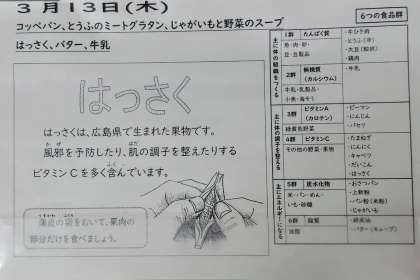 3月13日(木)
コッペパン、とうふのミートグラタン、じゃがいもと野菜のスープ
はっさく、バター、牛乳
はっさく
はっさくは、広島県で生まれた果物です。
風邪を予防したり、肌の調子を整えたりする
かぜ はだ
ビタミンCを多く含んでいます。
ふく
薄皮の袋をおいて、果肉の
部分だけを食べましょう。
6つの食品群
主に体の組織をつくる
1群 たんぱく質
魚・肉・卵・
豆・豆製品
・牛ひき肉
・とうふ(冷)
・鶏肉
2群 無機質
(カルシウム)
牛乳・乳製品・
小魚・海そう
・牛乳
主に体の調子を整える
3群 ビタミンA
(カロテン)
緑黄色野菜
・ピーマン
・にんじん
・パセリ
4群 ビタミンC
その他の野菜・果物
・たまねぎ
・にんにく
・キャベツ
・だいこん
・はっさく
主にエネルギーになる
5群 炭水化物
米・パン・めん・
いも・砂糖
・上新粉
・パン粉(米粉)
・じゃがいも
6群 脂質
油脂
・バター(キューブ)